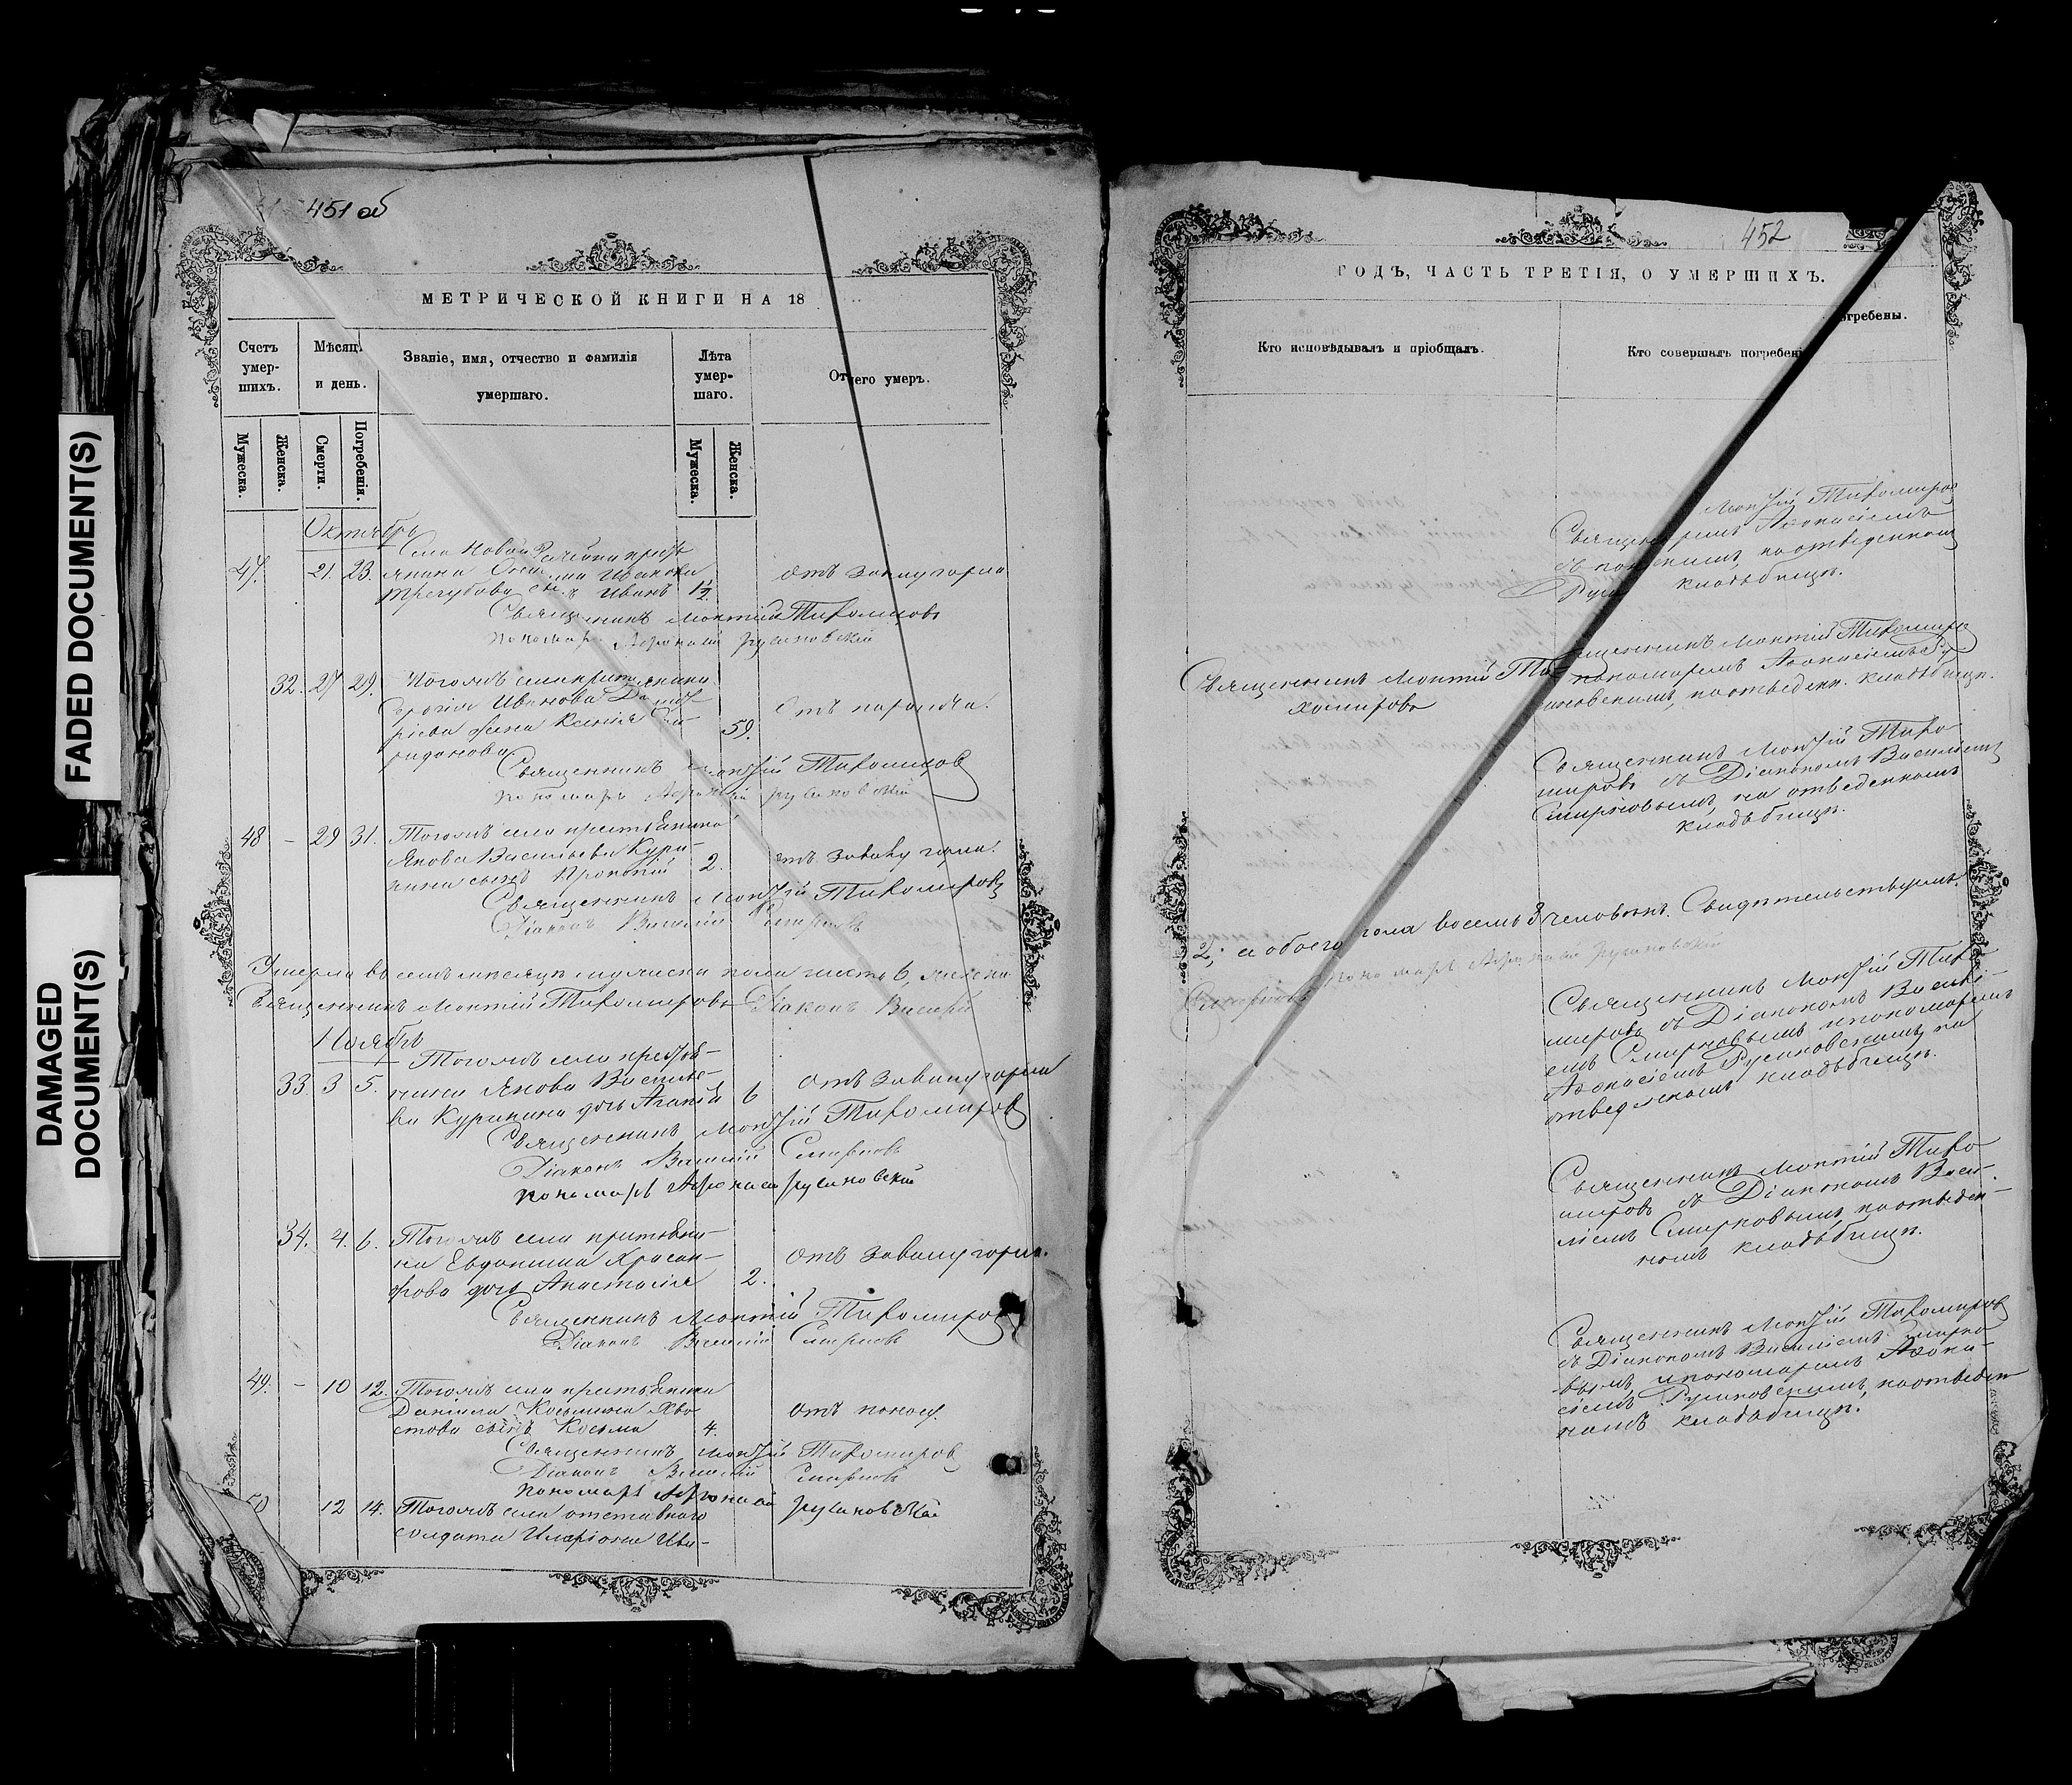 FADED DOCUMENT(S)
DAMAGED
DOCUMENT(S)
451 об
МЕТРИЧЕСКОЙ КНИГИ НА 18
Счетъ
умер-
шихъ.
Мѣсяц
и день.
Званіе, имя, отчество и фамилія
умершаго.
Лѣта
умер-
шаго.
Отчего умеръ.
Мужеска.
Женска.
Смерти.
Погребенія.
Мужеска.
Женска.
Октябрь
Села Новой
47. 21. 23. Иванова
сынъ Иванъ 1½
Священникъ Монтій Тихомировъ
пономарь Афонасій Русановскій
32. 27 29. Тогожъ села крестьянина
Иванова
жена Ксенія Спи-
ридонова 59.
Священникъ Монтій Тихомировъ
пономарь Афонасій Русановскій
48 - 29 31. Тогожъ села крестьянина
Якова Васильева Кури-
кина сынъ Прокопій 2.
Священникъ Монтій Тихомировъ
Діаконъ Василій Смирновъ
Умерло въ семъ мѣсяцѣ мужеска пола шесть 6, женска
Священникъ Монтій Тихомировъ Діаконъ Василій
Ноябрь
Тогожъ села крестья-
33. 3 5. нина Якова Василье-
ва Курикина дочь 6
Священникъ Монтій Тихомировъ
Діаконъ Василій Смирновъ
пономарь Афонасій Русановскій
34. 4. 6. Тогожъ села крестьяни-
на Евдокима Хрисан-
фова дочь Анастасія 2.
Священникъ Монтій Тихомировъ
Діаконъ Василій Смирновъ
49. - 10 12. Тогожъ села крестьянина
Даніила Косьмина Хво-
стова сынъ Косьма 4. отъ поносу.
Священникъ Монтій Тихомировъ
Діаконъ Василій Смирновъ
пономарь Афонасій Русановскій
50 12 14. Тогожъ села отставнаго
солдата Иларіона Ива-
452
ГОДЪ, ЧАСТЬ ТРЕТІЯ, О УМЕРШИХЪ.
Кто исповѣдывалъ и пріобщалъ.
Кто совершалъ погребені
огребены.
Монтій Тихомировъ
Афонасіемъ
на отведенномъ
кладбищѣ.
Священникъ Монтій Ти-
хомировъ
щенникъ Монтій Тихомировъ
пономаремъ Афонасіемъ Ру
сановскимъ, на отведен. кладбищѣ.
Священникъ Монтій Тихо
мировъ съ Діакономъ Василіемъ
Смирновымъ, на отведенномъ
кладбищѣ.
2; а обоего пола восемь 8 человѣкъ. Свидѣтельствуемъ.
Смирновъ пономарь Афонасій Русановскій
Священникъ Монтій Тихо
мировъ съ Діакономъ Васілі-
емъ Смирновымъ и пономаремъ
Афонасіемъ Русановскимъ, на
отведенномъ кладбищѣ.
Священникъ Монтій Тихо
мировъ съ Діакономъ Васи-
ліемъ Смирновымъ, на отведен-
номъ кладбищѣ.
Священникъ Монтій Тихомировъ
съ Діакономъ Василіемъ Смирно-
вымъ, и пономаремъ Афона-
сіемъ Русановскимъ, на отведен
номъ кладбищѣ.